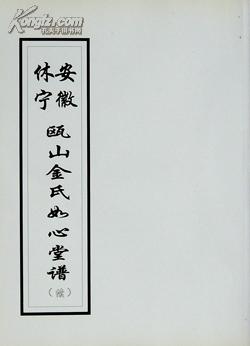 Kongfz.com
孔夫子旧书网
安徽
休宁
瓯山金氏如心堂谱